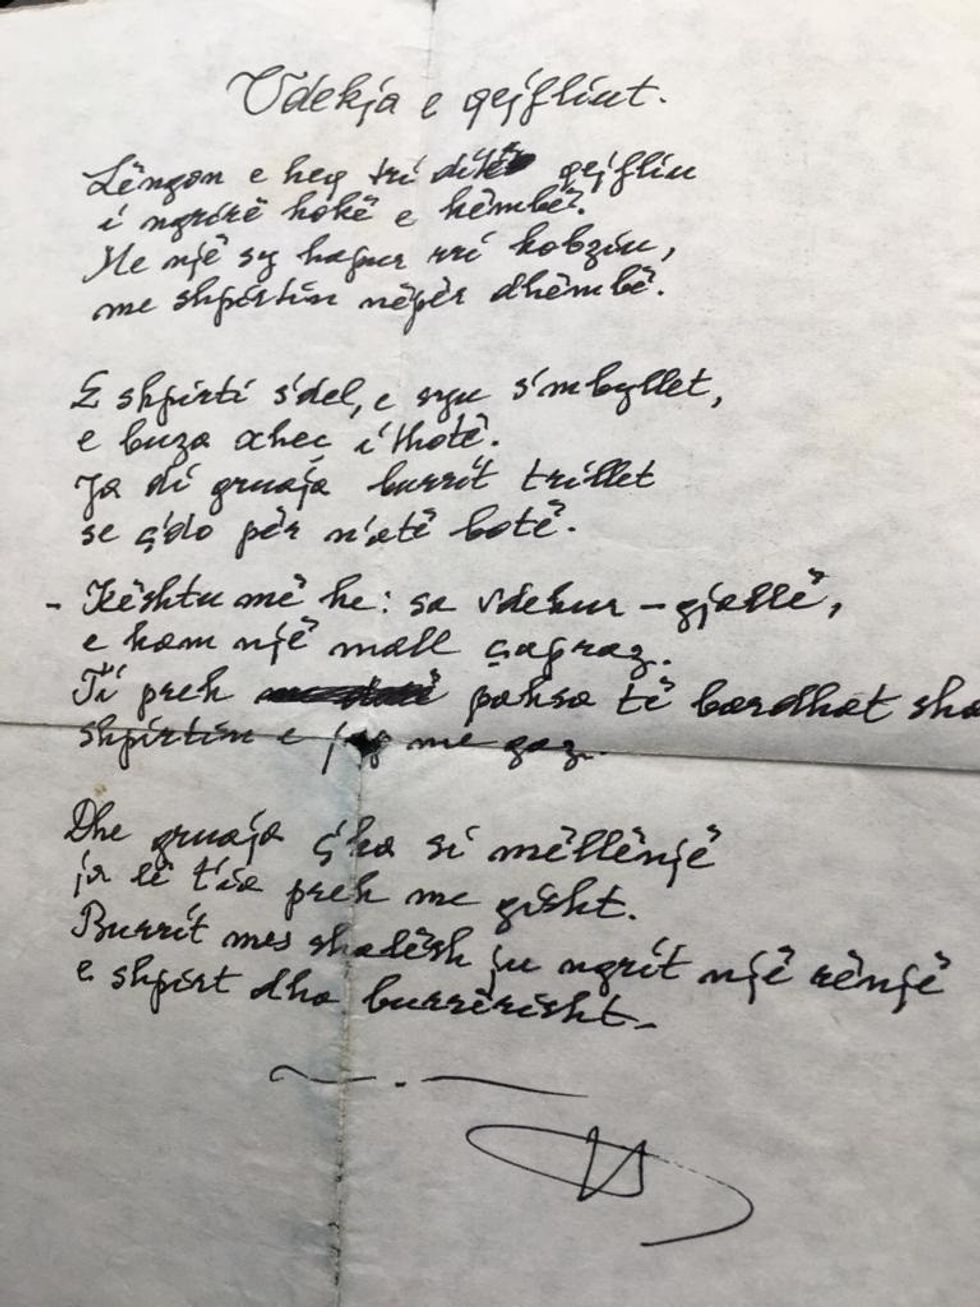 Vdekja e qejfliut.
Lëngon e heq tri ditë qejfliu
i ngrirë kokë e këmbë.
Me një sy hapur rri kobziu,
me shpirtin nëpër dhëmbë.
E shpirti s'del, e syu s'mbyllet,
e buza xhec i thotë.
Ja di gruaja burrit trillet
se ç'do për n'atë botë.
- Kështu më ke: sa vdekur - gjallë,
e kam një mall çapraz.
Ti prek paksa të bardhat sha
shpirtin e jap me gaz.
Dhe gruaja ç'ka si mëllënjë
ja lë t'ia prek me gisht.
Burrit mes shalësh ju ngrit një rënjë
e shpirt dha burrërisht.